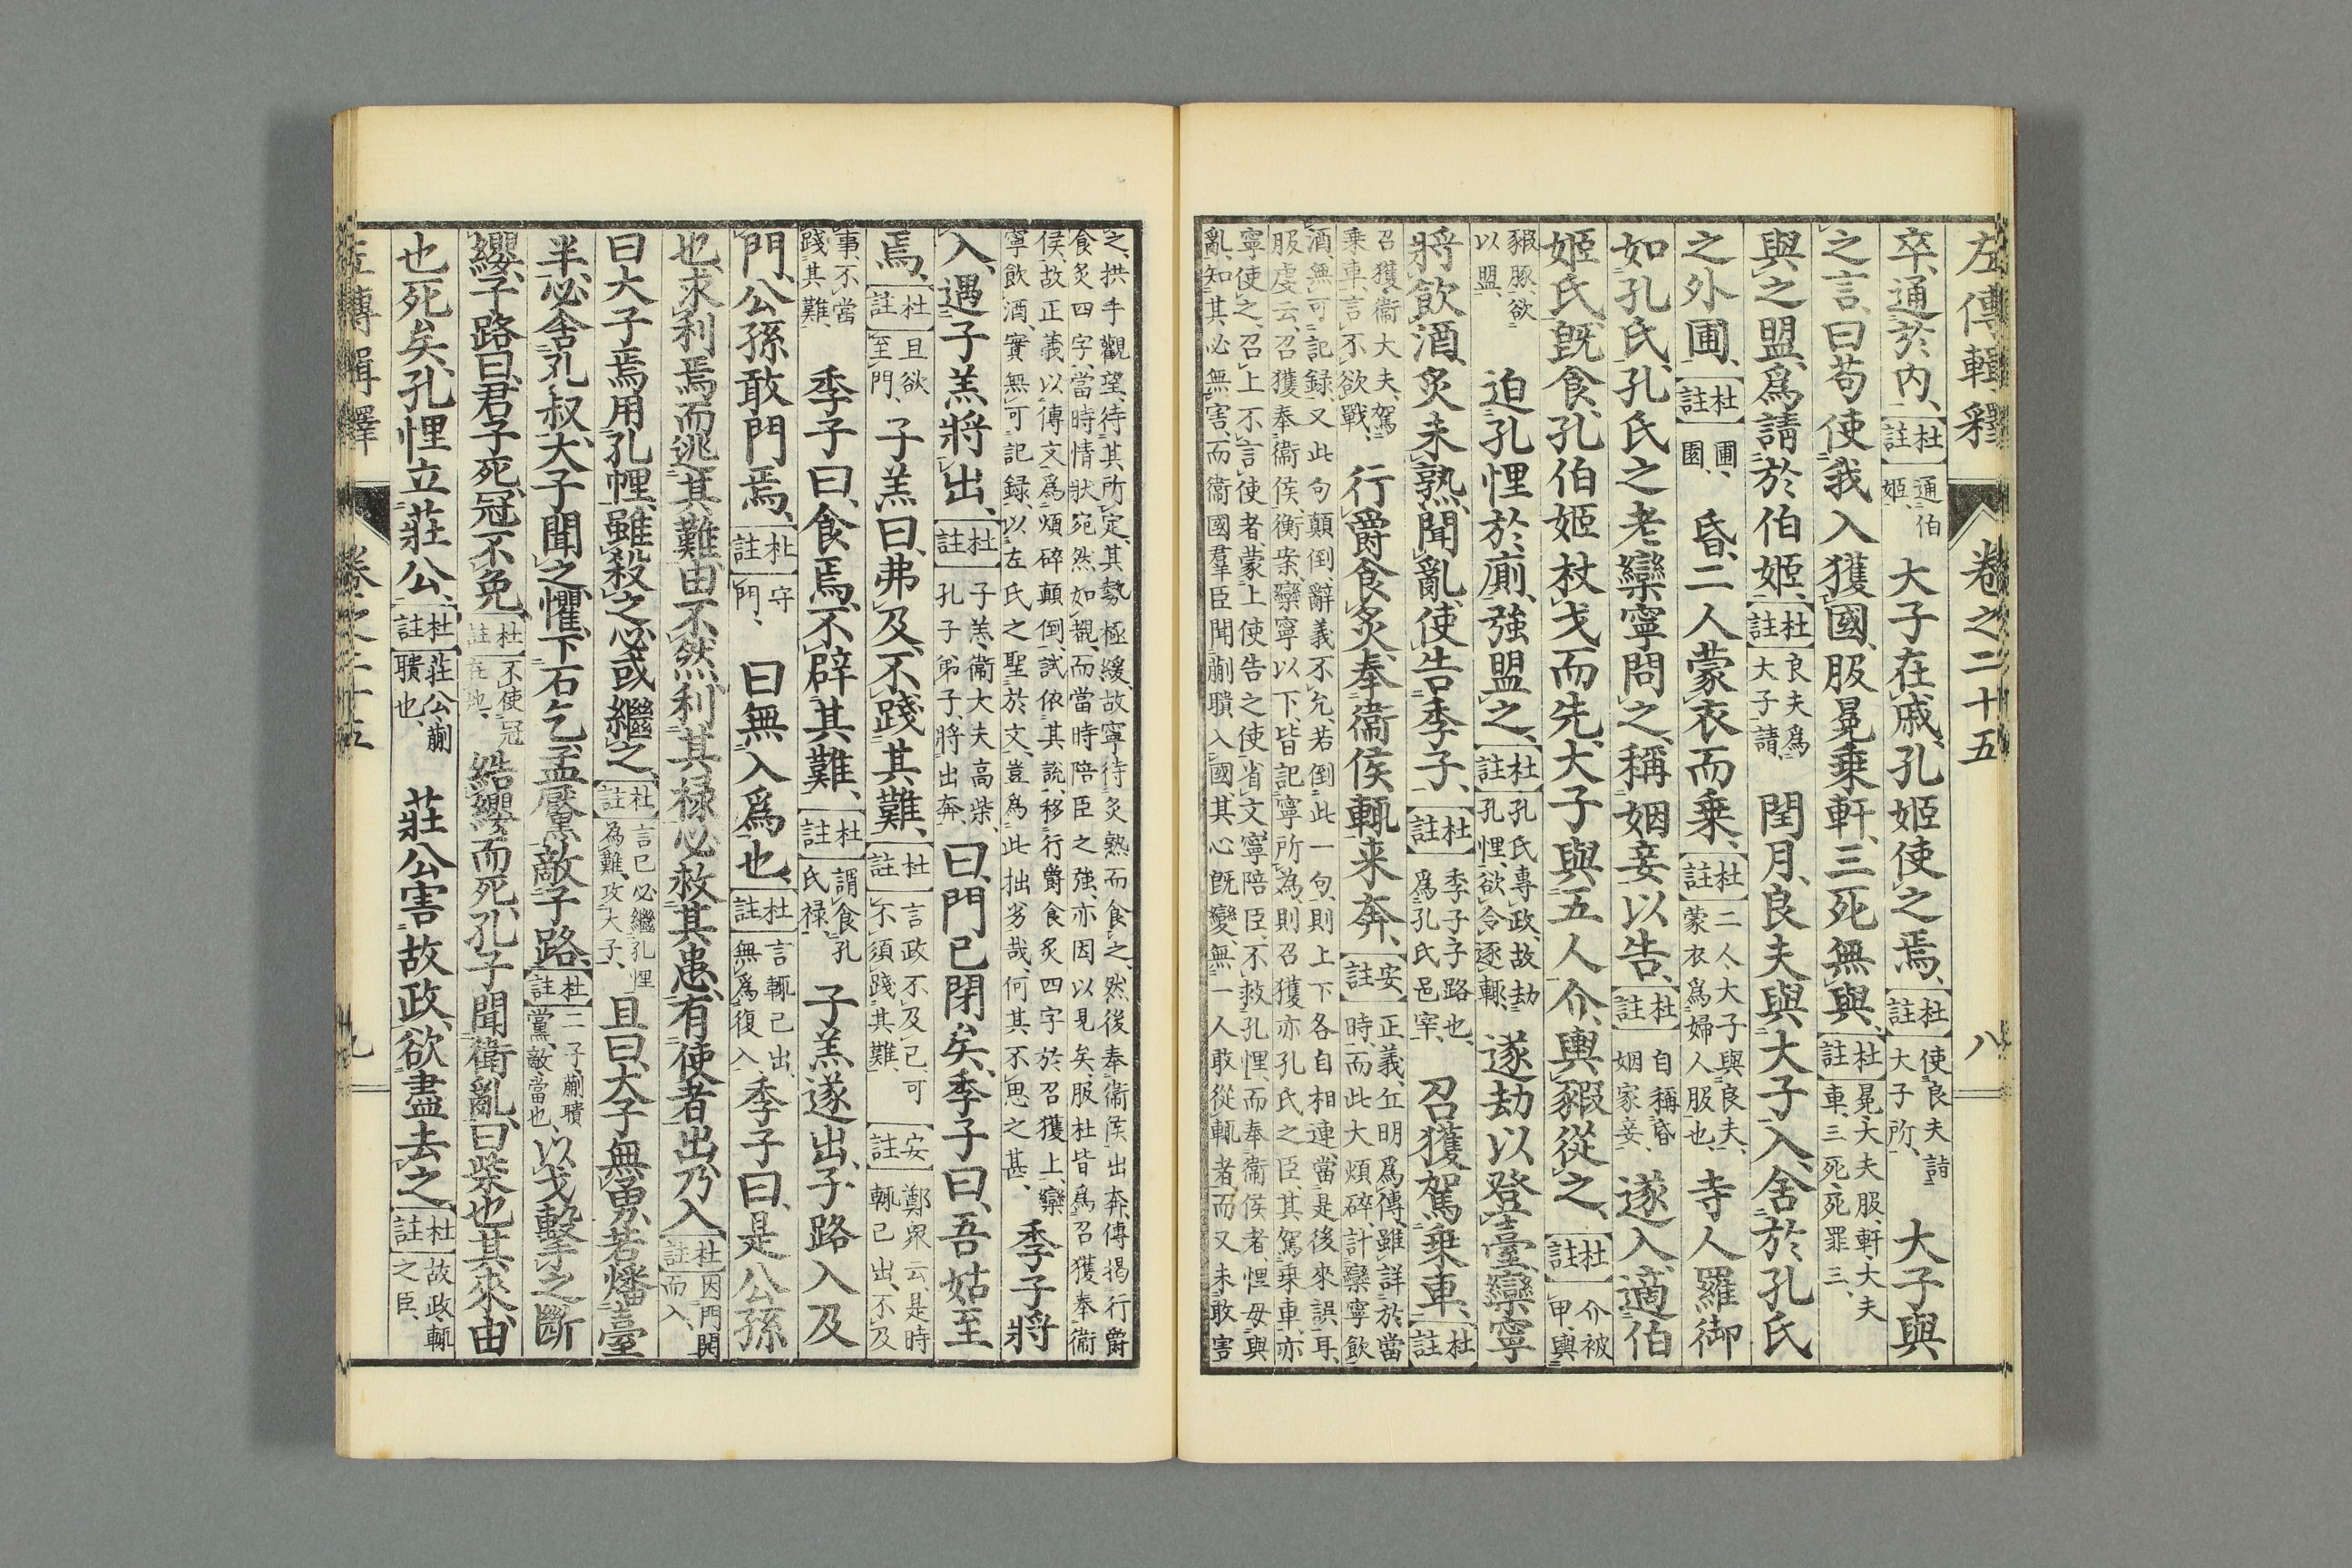 左傳輯釋　卷之二十五　八
卒、通於内、【杜註】通伯姬、大子在戚、孔姬使之焉、【杜註】使良夫詣大子所、大子與
之言、曰苟使我入獲國、服冕乗軒、三死無與、【杜註】冕、大夫服、軒、大夫車、三死、死罪三、
與之盟、爲請於伯姬、【杜註】良夫爲大子請、閏月、良夫與大子入、舍於孔氏
之外圃、【杜註】圃、園、昏、二人蒙衣而乗、【杜註】二人、大子與良夫、蒙衣爲婦人服也、寺人羅御
如孔氏、孔氏之老欒寧問之、稱姻妾以告、【杜註】自稱昏姻家妾、遂入、適伯
姬氏、既食、孔伯姬杖戈而先、大子與五人介、輿豭從之、【杜註】介、被甲、輿
豭豚、欲以盟、迫孔悝於廁、強盟之、【杜註】孔氏專政、故劫孔悝、欲令逐輒、遂劫以登臺、欒寧
將飲酒、炙未熟、聞亂、使告季子、【杜註】季子、子路也、爲孔氏邑宰、召獲駕乗車、【杜註】
召獲、衞大夫、駕乗車、言不欲戰、行爵食炙、奉衞侯輒來奔、【安註】正義、丘明爲傳、雖詳於當時、而此大煩碎、計欒寧飲
酒、無可記録、又此句顛倒、辭義不允、若倒此一句、則上下各自相連、當是後來誤耳、
服虔云、召獲奉衞侯、衡案、欒寧以下、皆記寧所為、則召獲亦孔氏之臣、其駕乗車、亦
寧使之、召上不言使者、蒙上使告之使省文、寧陪臣、不救孔悝、而奉衞侯者、悝母與
亂、知其必無害、而衞國羣臣聞蒯聵入國、其心既變、無一人敢從輒者、而又未敢害
之、拱手觀望、待其所定、其勢極緩、故寧待炙熟而食之、然後奉衞侯出奔、傳掲行爵
食炙四字、當時情狀宛然如覩、而當時陪臣之強、亦因以見矣、服杜皆爲召獲奉衞
侯、故正義以傳文爲煩碎顛倒、試依其說、移行爵食炙四字於召獲上、欒
寧飲酒、實無可記録、以左氏之聖於文、豈爲此拙劣哉、何其不思之甚、季子將
入、遇子羔將出、【杜註】子羔、衞大夫高柴、孔子弟子、將出奔、曰、門已閉矣、季子曰、吾姑至
焉、【杜註】且欲至門、子羔曰、弗及、不踐其難、【杜註】言政不及己、可不須踐其難、【安註】鄭衆云、是時輒已出、不及
事、不當踐其難、季子曰、食焉、不辟其難、【杜註】謂食孔氏禄、子羔遂出、子路入、及
門、公孫敢門焉、【杜註】守門、曰無入爲也、【杜註】言輒已出、無爲復入、季子曰、是公孫
也、求利焉而逃其難、由不然、利其禄、必救其患、有使者出、乃入、【杜註】因門開而入、
曰大子焉用孔悝、雖殺之、必或繼之、【杜註】言己必繼孔悝為難、攻大子、且曰、大子無勇、若燔臺
半、必舍孔叔、大子聞之懼、下石乞孟黶敵子路、【杜註】二子、蒯聵黨、敵、當也、以戈擊之、斷
纓、子路曰、君子死、冠不免、【杜註】不使冠在地、結纓而死、孔子聞衞亂、曰、柴也其來、由
也死矣、孔悝立莊公、【杜註】莊公、蒯聵也、莊公害故政、欲盡去之、【杜註】故政、輒之臣、
左傳輯釋　卷之二十五　九